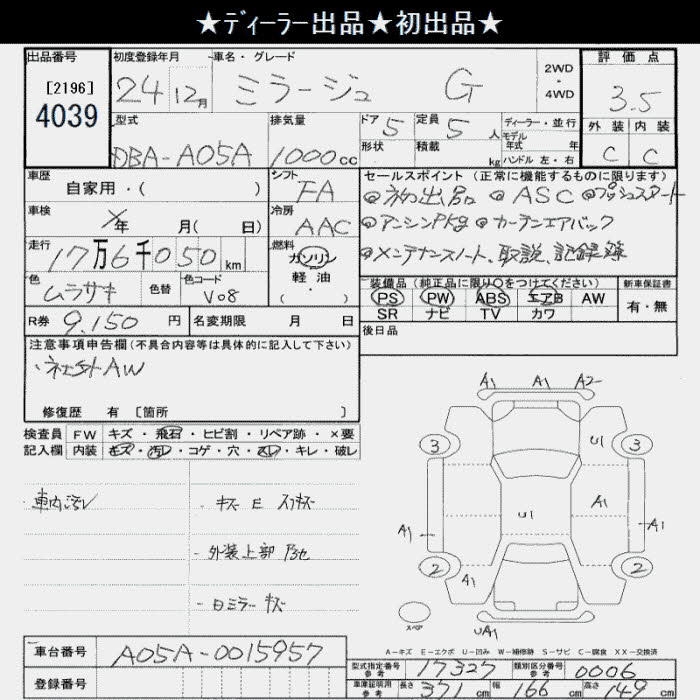 ★ディーラー出品★初出品★
出品番号 初度登録年月 車名・グレード 2WD・4WD 評価点
[2196]
4039
24 12月 ミラージュ G 3.5
型式 排気量 ドア 定員 ディーラー・並行 外装 内装
DBA-A05A 1000cc 5 5人 モデル年式 年 C C
形状 積載 kg ハンドル 左・右
車歴 シフト セールスポイント(正常に機能するものに限ります)
自家用・( ) FA ◎初出品 ◎ASC ◎プッシュスタート
車検 年 月( 日) 冷房 AAC ◎アンシンPkg ◎カーテンエアバック
走行 17万6千050km 燃料 ガソリン 軽油 ( ・ ) ◎メンテナンスノート、取説、記録簿
色 色替 色コード 装備品(純正品に限り○をつけてください) 新車保証書
ムラサキ V08 PS PW ABS エアB AW 有・無
SR ナビ TV カワ
R券 9.150円 名変期限 月 日 後日品
注意事項申告欄(不具合内容等は具体的に記入して下さい)
・社外AW
修復歴 有 [箇所 ]
検査員 FW キズ・飛石・ヒビ割・リペア跡・×要
記入欄 内装 キズ・汚レ・コゲ・穴・スレ・キレ・破レ
A1 A1 A2
3 U1 3
・車内汚レ ・キズ E スリキズ
A1 U1 A1 A1
・外装上部
2 A1 2
・日ミラーキズ
スペア UA1
A-キズ E-エクボ U-凹み W-補修跡 S-サビ C-腐食 XX-交換済
車台番号 A05A-0015957
型式指定番号 参考 17327 類別区分番号 参考 0006
登録番号
車庫証明用 参考 長さ 371cm 幅 166cm 高さ 149cm